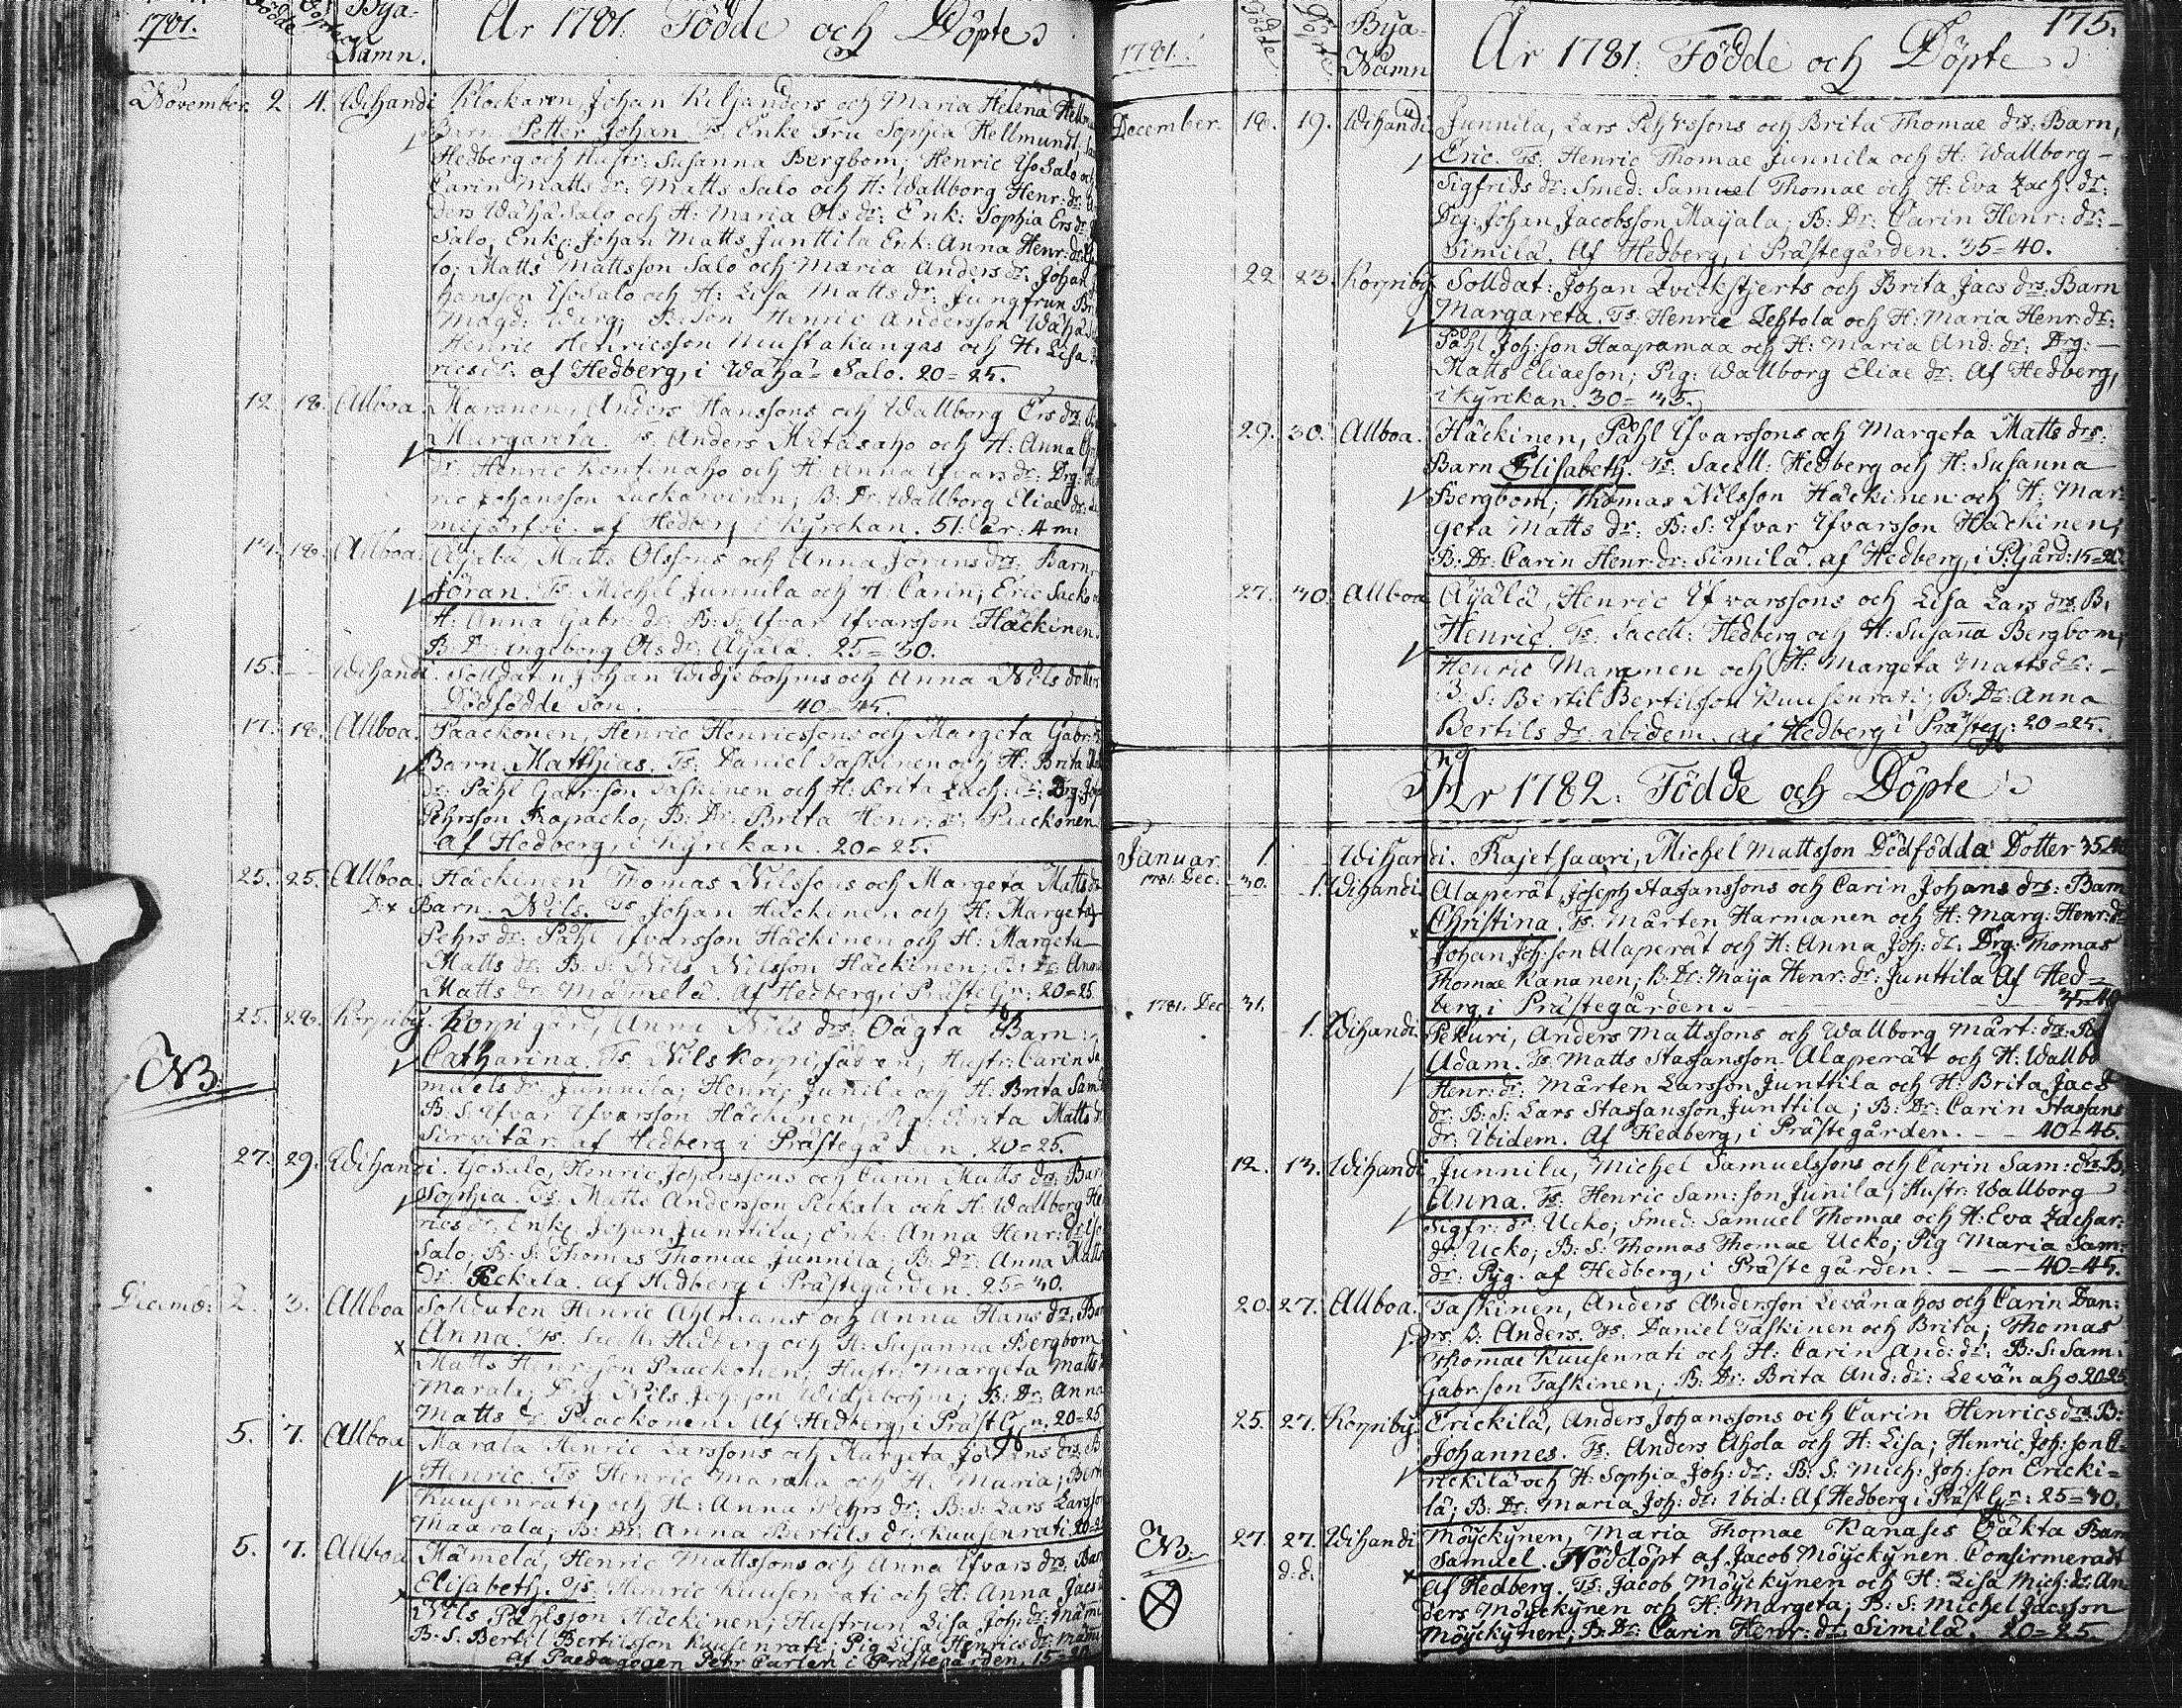 1781. Födde Döpte Bya-
Namn.
År 1781. Födde och Döpte
November. 2 4. Wihandi Klockaren, Johan Kiljanders och Maria Helena
Barn Petter Johan Ts. Enke Fru Sophia Hellmundt,
Hedberg och Hustr: Susanna Bergbom; Henric Isosalo och
Carin Matts dr: Matts Salo och H: Wallborg Henr: dr:
ders Wähä Salo och H: Maria Ols dr: Enk: Sophia Ers dr
Salo, Enk: Johan Matts Junttila Enk: Anna Henr: dr
lo; Matts Mattsson Salo och Maria Anders dr: Johan
hansson Isosalo och H: Lisa Matts dr: Jungfrun
Magd: Warg; B: Son Henric Andersson Wähä
Henric Henricsson Mustakangas och H: Lisa
rics dr: af Hedberg, i Wähä-Salo. 20=25.
12. 18. Allboa. Maranen, Anders Hanssons och Wallborg Ers drs:
Margareta. Ts. Anders Matasaho och H: Anna
dr: Henric Kontinaho och H: Anna Ifvars dr: Drg:
ric Johansson Luckarinen; B: Dr: Wallborg Eliae dr:
mijärfvi. af Hedberg i Kyrckan. 51: år: 4 m:
14. 18. Allboa. Äyälä, Matts Olssons och Anna Jörans drs: Barn
Jöran. Ts: Michel Junnila och H: Carin; Eric Sacko
H: Anna Gabr: dr: B: S: Ifvar Ifvarsson Häckinen
B: Dr: Ingeborg Ols dr: Äyälä. 25=30.
15. Wihandi. Solldaten Johan Widjebohms och Anna Nils dotters
Dödfödde Son. 40=45.
17. 18. Allboa. Paackonen, Henric Henricssons och Margeta Gabr:
Barn Matthias. Ts: Daniel Taskinen och H: Brita
dr: Påhl Gabr:son Taskinen och H: Brita Zach: dr: Drg:
Pehrsson Rapacko; B: Dr: Brita Henr: dr: Paackonen
af Hedberg, i Kyrckan. 20=25.
25. 25. Allboa. Häckinen Thomas Nilssons och Margeta Matts dr
D: x Barn. Nils. Ts Johan Häckinen och H: Margeta
Pehrs dr: Påhl Ifvarsson Häckinen och H: Margeta
Matts dr: B: S: Nils Nilsson Häckinen; B: Dr: Anna
Matts dr Mämelä. Af Hedberg, i PrästeGn: 20=25
25. 28. Korpiby. Korpi gård, Anna Nils drs: Oägta Barn:
NB: Catharina. Ts. Nils Korpi, Hustr: Carin
muels dr: Junnila; Henric Junila och H: Brita Sam
B: S: Ifvar Ifvarsson Häckinen; Pig: Brita Matts dr
Sirvitär. af Hedberg i Prästegården. 20=25.
27. 29. Wihandi. Isosalo, Henric Johanssons och Carin Matts drs: Barn
Sophia. Ts. Matts Andersson Pickala och H: Wallborg Hen
rics dr, Enk: Johan Junttila; Enk: Anna Henr: dr: Iso
Salo; B: S: Thomas Thomae Junnila; B: Dr: Anna Matts
Dr. Pickala. af Hedberg i Prästegården. 25=30.
Decemb: 2. 3. Allboa Solldaten Henric Ahlmans och Anna Hans drs: Barn
Anna. Ts. Sacell: Hedberg och H: Susanna Bergbom
Matts Henr:son Paackonen; Hustr: Margeta Matts
Marala; Drg: Nils Joh:son Widjebohm; B: Dr: Anna
Matts dr: Paackonen. Af Hedberg, i PrästGn. 20=25
5. 7. Allboa Marala Henric Larssons och Margeta Jörans drs: B
Henric. Ts Henric Marala och H: Maria; Bert
Kuusenrati, och H: Anna Pehrs dr: B: S: Lars Larsson
Maarala; B: Dr: Anna Bertils dr Kuusenrati 20=25
5. 7. Allboa Hämelä, Henric Mattssons och Anna Ifvars drs: Barn
Elisabeth. Ts: Henric Kuusenrati och H: Anna Jacs dr
Nils Påhlsson Häckinen; Hustrun Lisa Joh: dr:
B: S: Bertil Bertilsson Kuusenrati; Pig Lisa Henrics dr:
af Paedagogen Pehr Carlen i Prästegården. 15=20.
175.
1781. Födde Döpte Bya-
Namn
År 1781. Födde och Döpte
December. 18. 19. Wihandi Junnila, Lars Pehrssons och Brita Thomae drs: Barn,
Eric. Ts: Henric Thomae Junnila och H: Wallborg –
Sigfrids dr: Smed: Samuel Thomae och H: Eva Zach: dr:
Drg: Johan Jacobsson Maijala; B: Dr: Carin Henr: dr: –
Similä. Af Hedberg, i Prästegården. 35=40.
22 23. Korpiby Solldat: Johan Qvickstjerts och Brita Jacs drs: Barn
Margareta. Ts: Henric Lehtola och H: Maria Henr: dr:
Påhl Joh:son Haapamaa och H: Maria And: dr: Drg: –
Matts Eliaeson; Pig: Wallborg Eliae dr: Af Hedberg,
i kyrckan. 30=35.
29. 30. Allboa. Häckinen, Påhl Ifvarssons och Margeta Matts drs:
Barn Elisabeth. Ts: Sacell: Hedberg och H: Susanna
Bergbom; Thomas Nilsson Häckinen och H: Mar
geta Matts dr: B: S: Ifvar Ifvarsson Häckinen,
B: Dr: Carin Henr: dr: Similä. af Hedberg, i P:Gård: 15=20.
27. 30. Allboa Äyälä, Henric Ifvarssons och Lisa Lars drs: B:
Henric. Ts: Sacell: Hedberg och H: Susanna Bergbom,
Henric Maranen och H: Margeta Matts dr: –
B: S: Bertil Bertilsson Kuusenrati; B: Dr: Anna
Bertils dr: ibidem. af Hedberg i Prästeg: 20=25.
År 1782. Födde och Döpte
Januar. 1. Wihandi. Rajetsaari, Michel Mattsson Dödfödda Dotter
1781. Dec. 30. 1. Wihandi Alaperät, Joseph Staffanssons och Carin Johans drs: Barn
Christina. Ts. Mårten Harmanen och H: Marg: Henr: dr
Johan Joh:son Alaperät och H: Anna Joh: dr: Drg: Thomas
Thomae Kananen; B: Dr: Maija Henr: dr: Junttila Af Hed=
berg i Prästegården. 35=40
1781. Dec 31. 1. Wihandi Pekuri, Anders Mattssons och Wallborg Mårt: drs:
Adam. Ts. Matts Staffansson Alaperät och H: Wallbo
Henr: dr: Mårten Larsson Junttila och H: Brita Jacs
dr: B: S: Lars Staffansson Junttila; B: Dr: Carin Staffans
dr: ibidem. Af Hedberg, i Prästegården. – – 40=45.
12. 13. Wihandi Junnila, Michel Samuelssons och Carin Sam: drs: B.
Anna. Ts: Henric Sam:son Junila; Hustr: Wallborg
Sigfr: dr: Ucko; Smed: Samuel Thomae och H: Eva Zachar:
dr: Ucko; B: S: Thomas Thomae Ucko; Pig Maria Sam:
dr: Pyg. af Hedberg, i Prästegården. – – – 40=45.
20. 27. Allboa. Taskinen, Anders Andersson Levänahos och Carin Dan:
drs: B: Anders. Ts. Daniel Taskinen och Brita; Thomas
Thomae Kuusenrati och H: Carin And: dr: B: S: Sam:
Gabr:son Taskinen; B: Dr: Brita And: dr: Levänaho 20=25
25. 27. Korpiby. Erickilä, Anders Johanssons och Carin Henrics drs: B:
Johannes. Ts: Anders Ahola och H: Lisa; Henric Joh:son E=
rickilä och H: Sophia Joh: dr: B: S: Mich: Joh:son Ericki=
lä; B: Dr: Maria Joh: dr: ibid: Af Hedberg i PrästGn: 25=30.
NB: 27. 27. d. d. Wihandi Möyckynen, Maria Thomae Kanases Oäkta Barn
Samuel. Nöddöpt af Jacob Möyckynen. Confirmeradt
af Hedberg. Ts: Jacob Möyckynen och H: Lisa Mich: dr: An
ders Möyckynen och H: Margeta; B: S: Michel Jacsson
Möyckynen; B: Dr: Carin Henr: dr: Similä. 20=25.